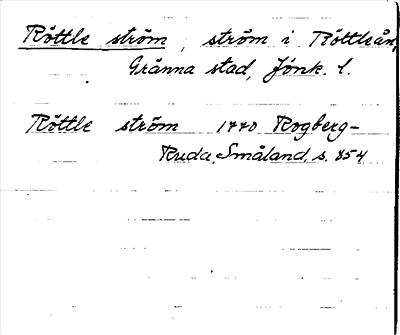 Röttle ström, ström i Röttleån,
Gränna stad, Jönk. l.
Röttle ström 1770 Rogberg-
Ruda, Småland, s. 854